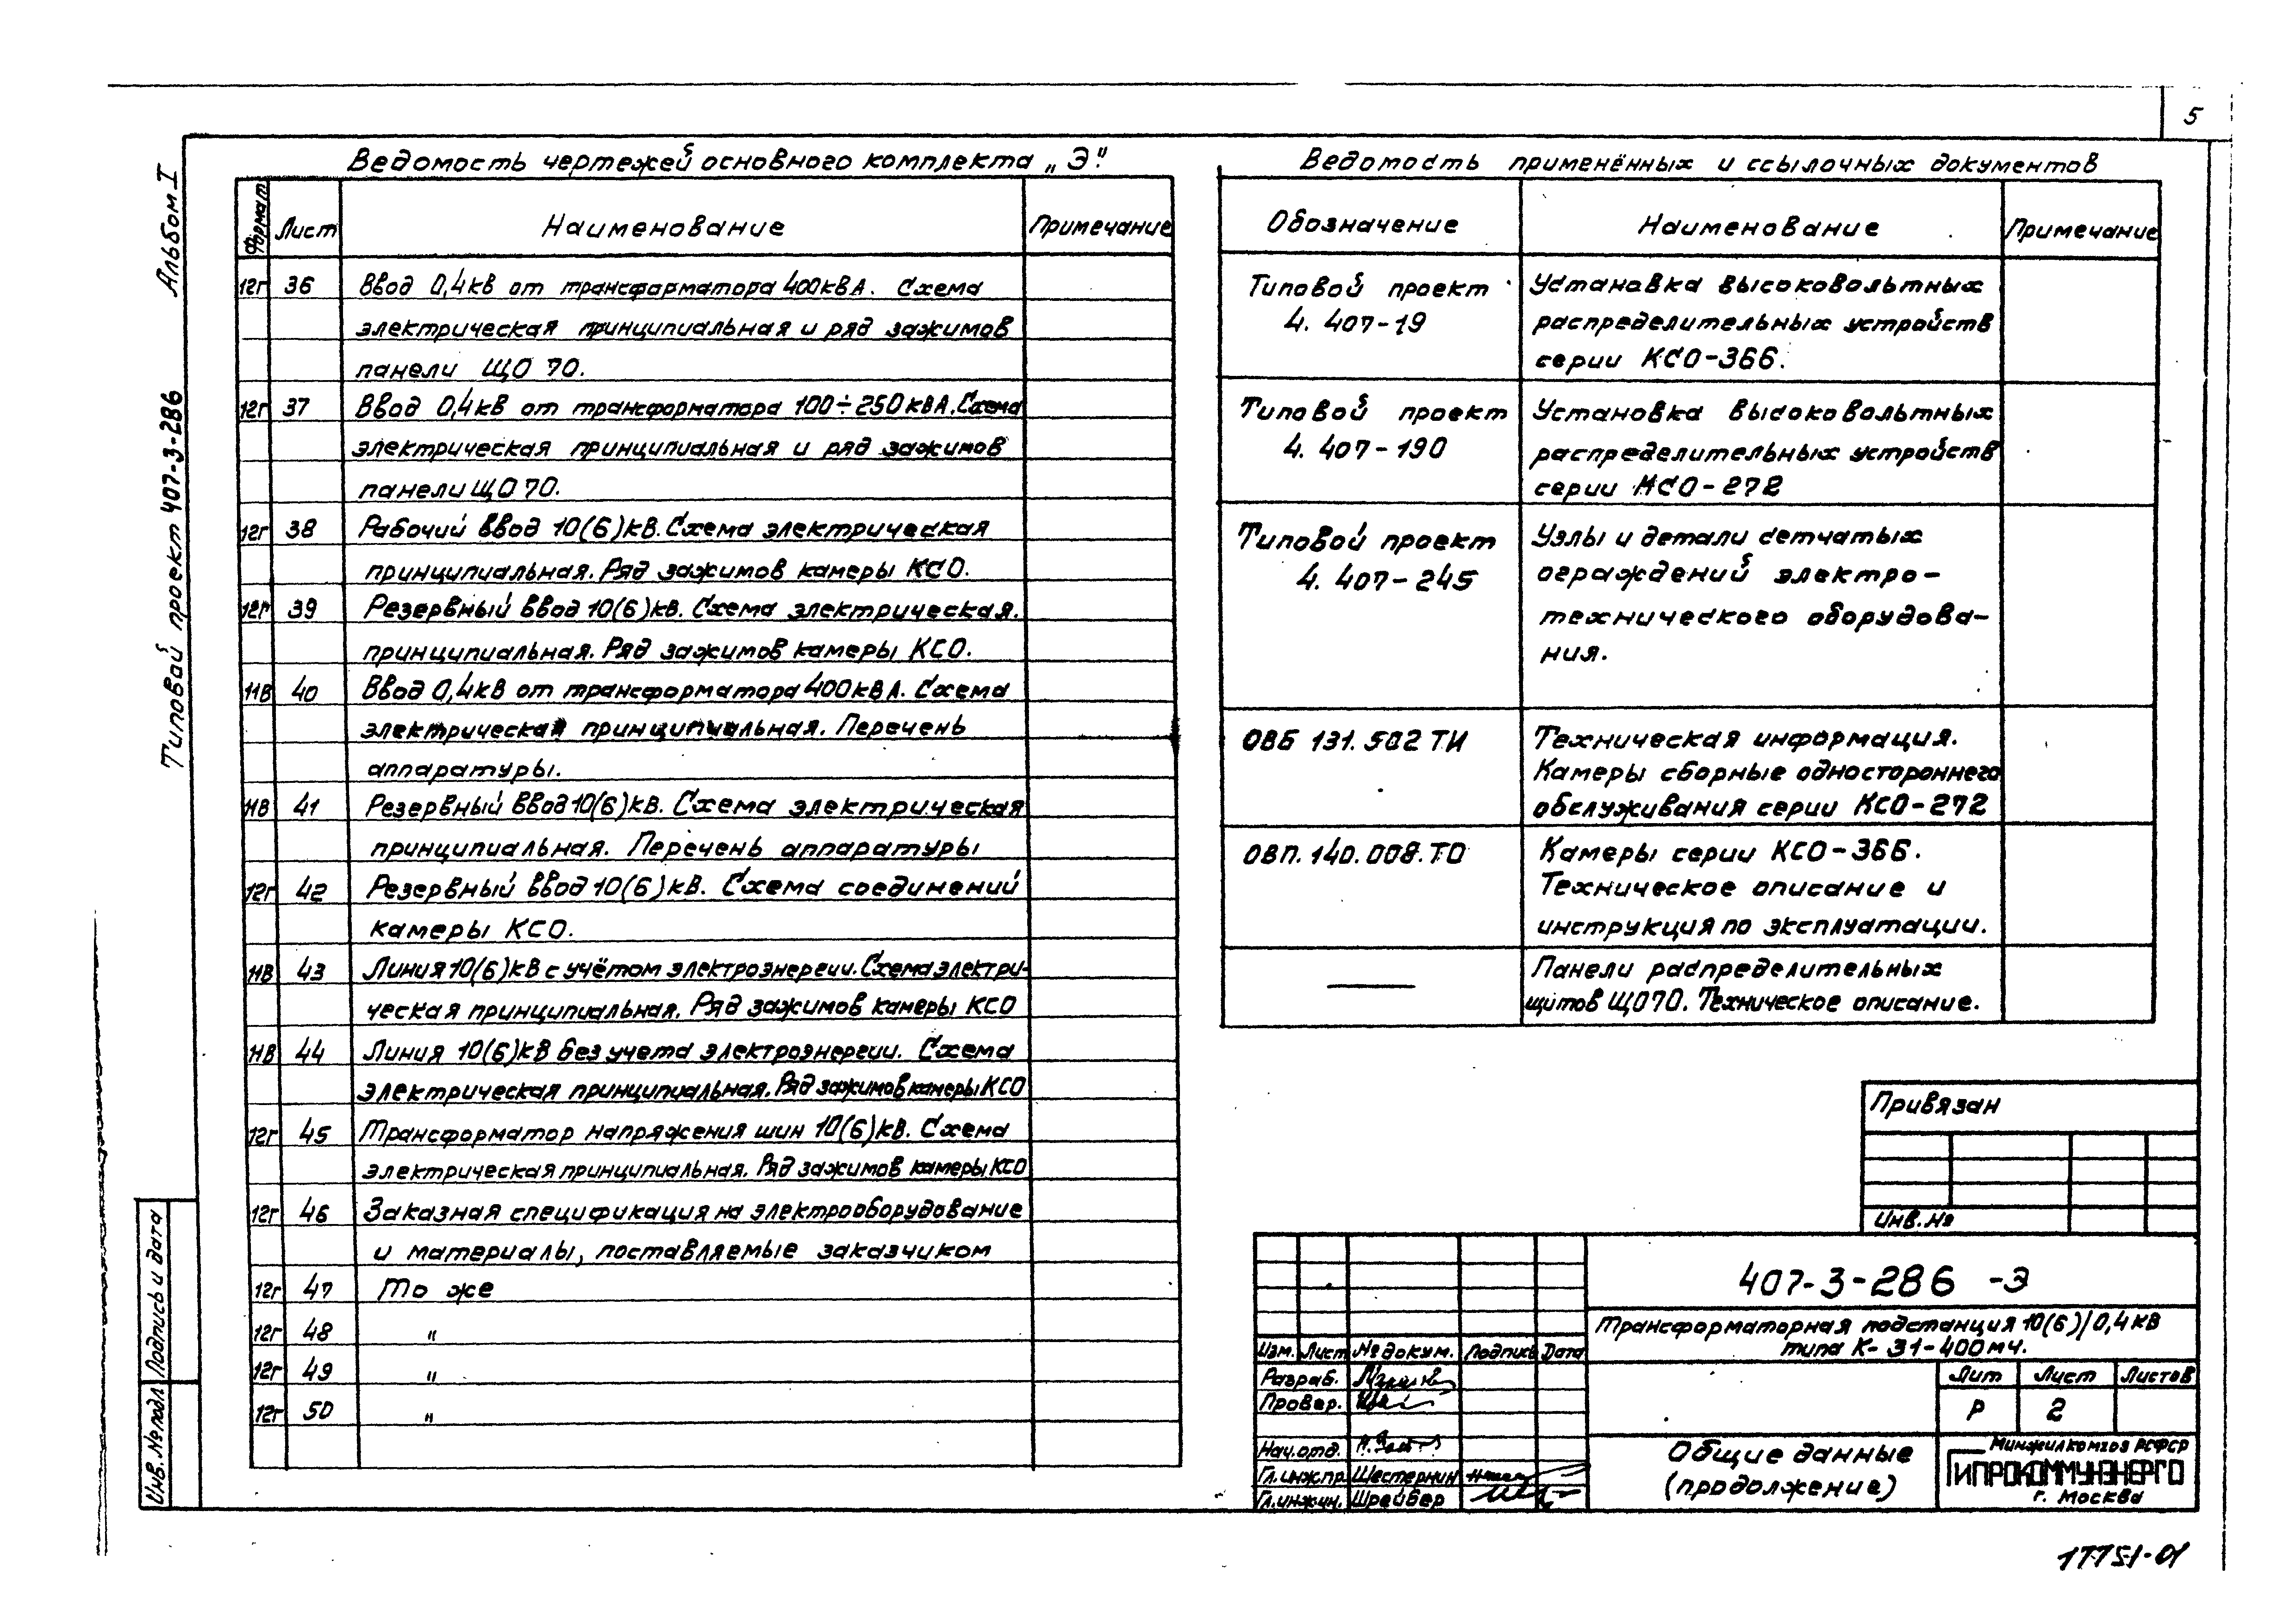 5
Альбом I
Типовой проект 407-3-286
Ведомость чертежей основного комплекта „Э."
Формат Лист Наименование Примечание
12г 36 Ввод 0,4кВ от трансформатора 400кВА. Схема
электрическая принципиальная и ряд зажимов
панели ЩО 70.
12г 37 Ввод 0,4кВ от трансформатора 100÷250кВА. Схема
электрическая принципиальная и ряд зажимов
панели ЩО70.
12г 38 Рабочий ввод 10(6)кВ. Схема электрическая
принципиальная. Ряд зажимов камеры КСО.
12г 39 Резервный ввод 10(6)кВ. Схема электрическая.
принципиальная. Ряд зажимов камеры КСО.
11В 40 Ввод 0,4кВ от трансформатора 400кВА. Схема
электрическая принципиальная. Перечень
аппаратуры.
11В 41 Резервный ввод 10(6)кВ. Схема электрическая
принципиальная. Перечень аппаратуры
12г 42 Резервный ввод 10(6)кВ. Схема соединений
камеры КСО.
11В 43 Линия 10(6)кВ с учётом электроэнергии. Схема электри-
ческая принципиальная. Ряд зажимов камеры КСО
11В 44 Линия 10(6)кВ без учета электроэнергии. Схема
электрическая принципиальная. Ряд зажимов камеры КСО
12г 45 Трансформатор напряжения шин 10(6)кВ. Схема
электрическая принципиальная. Ряд зажимов камеры КСО
12г 46 Заказная спецификация на электрооборудование
и материалы, поставляемые заказчиком
12г 47 То же
12г 48 "
12г 49 "
12г 50 "
Ведомость применённых и ссылочных документов
Обозначение Наименование Примечание
Типовой проект Установка высоковольтных
4. 407-19 распределительных устройств
серии КСО-366.
Типовой проект Установка высоковольтных
4. 407-190 распределительных устройств
серии КСО-272
Типовой проект Узлы и детали сетчатых
4. 407-245 ограждений электро-
технического оборудова-
ния.
ОВБ 131. 502 ТИ Техническая информация.
Камеры сборные одностороннего
обслуживания серии КСО-272
ОВП. 140. 008. ТО Камеры серии КСО-366.
Техническое описание и
инструкция по эксплуатации.
Панели распределительных
щитов ЩО70. Техническое описание.
Привязан
Инв. №
407-3-286 -Э
Трансформаторная подстанция 10(6)/0,4кВ
типа К-31-400мч.
Изм. Лист № докум. Подпись Дата
Разраб.
Провер.
Нач.отд.
Гл.инж.пр. Шестернин
Гл.инжин. Шрейбер
Лит Лист Листов
Р 2
Общие данные
(продолжение)
Минжилкомхоз РСФСР
ГИПРОКОММУНЭНЕРГО
г. Москва
Подпись и дата
Инв. № подл
17751-01